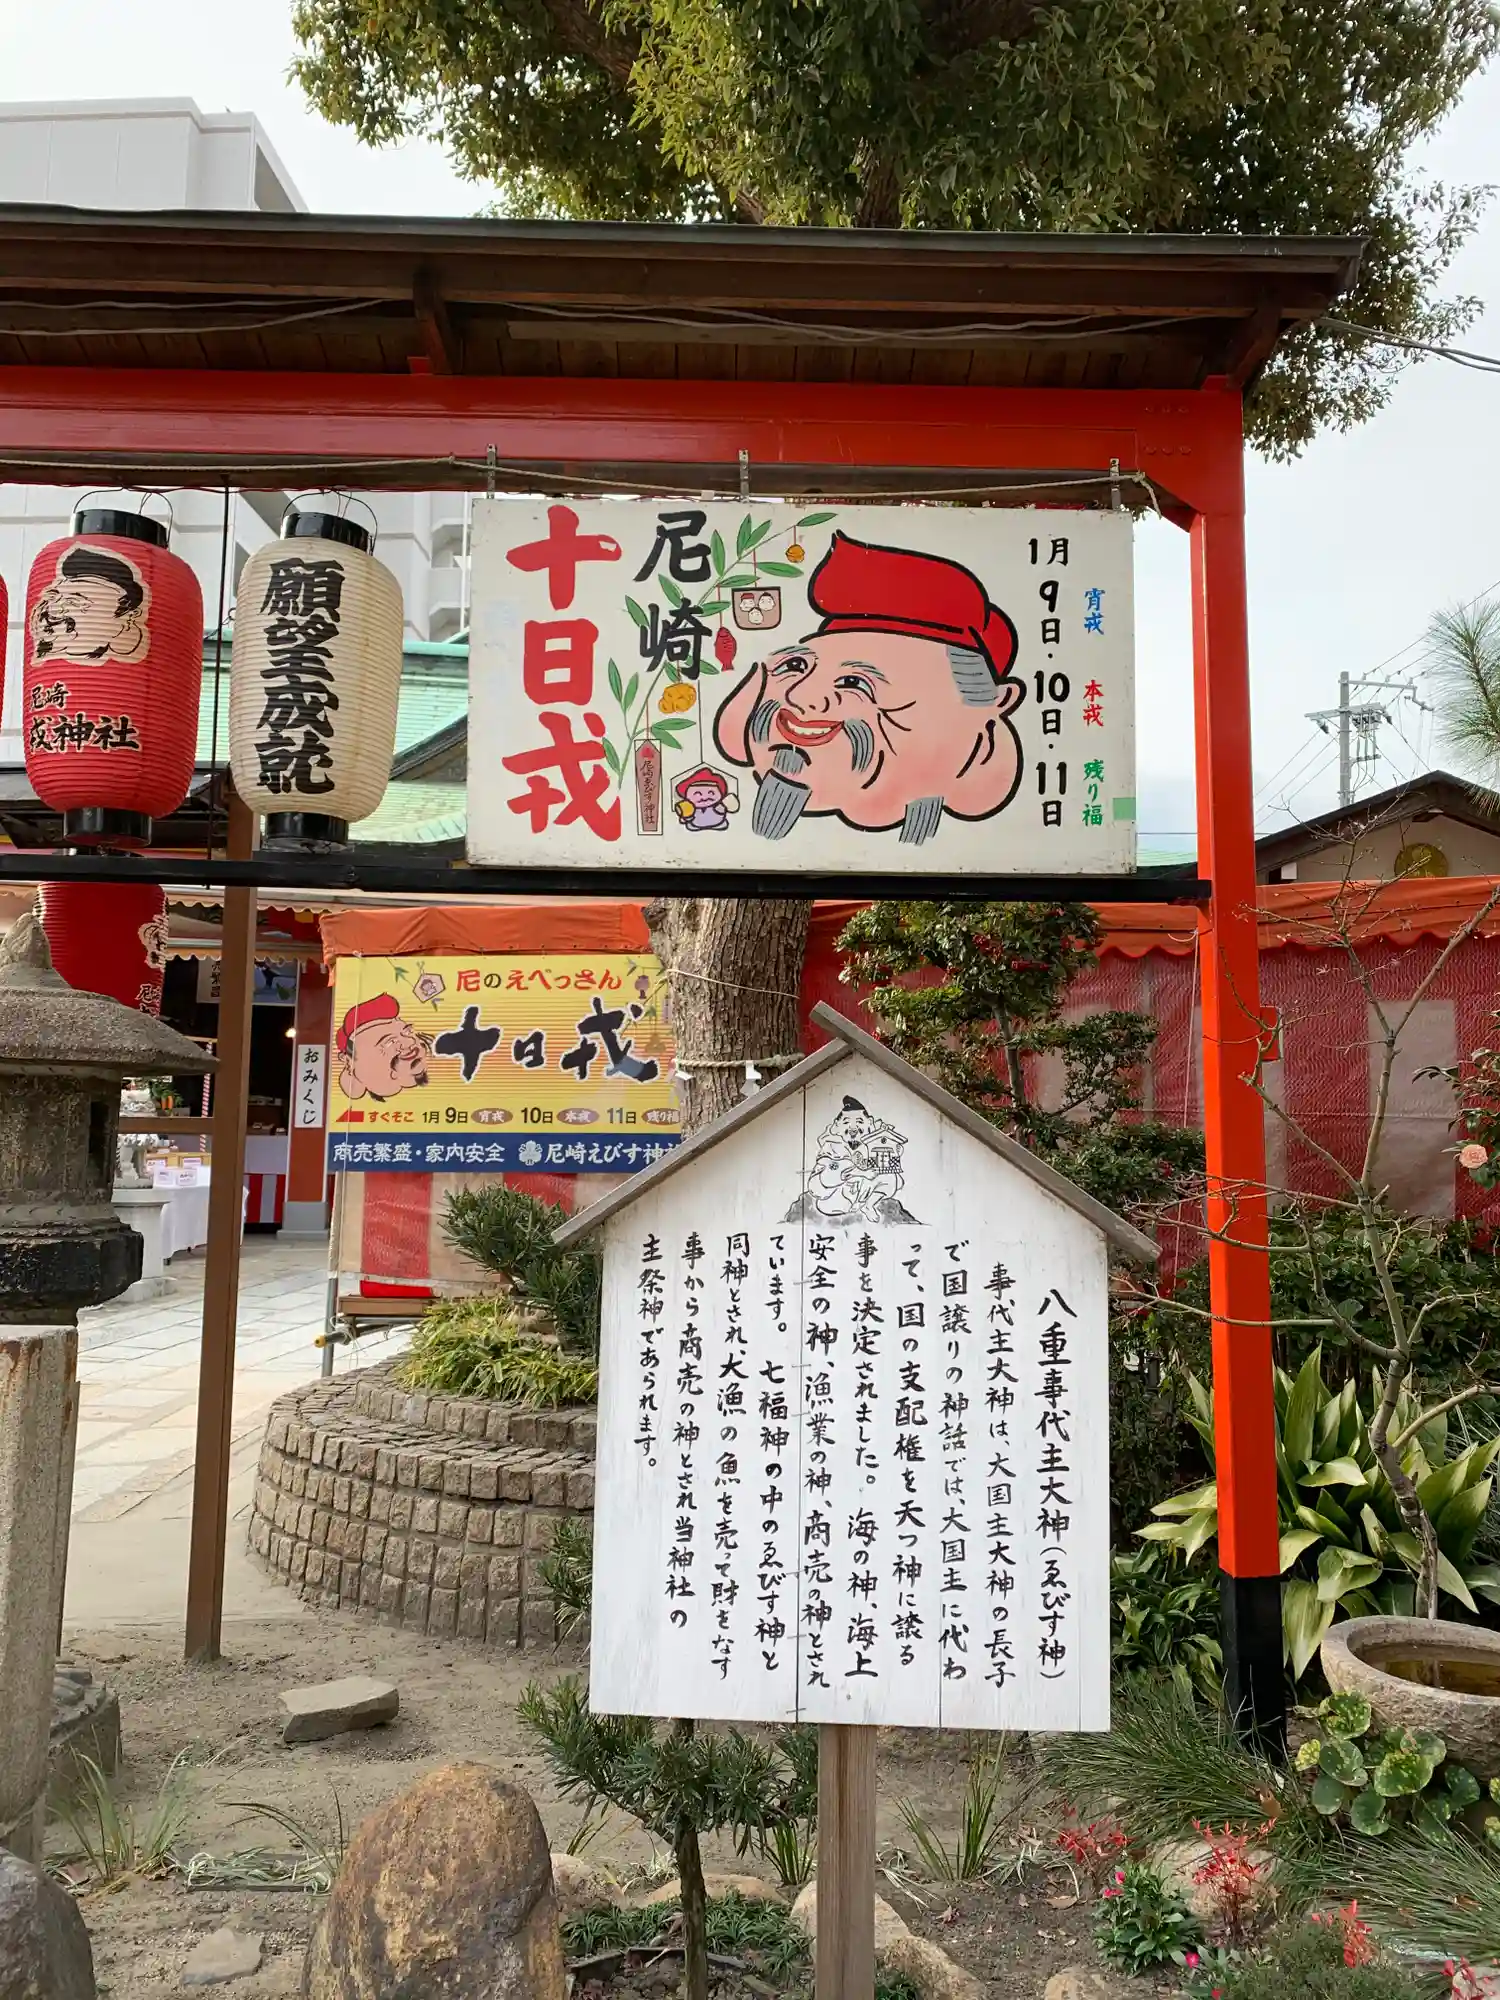 尼崎
十日戎
1月
9日・10日・11日
宵戎
本戎
残り福
尼崎ゑびす神社
尼崎
戎神社
願望成就
尼のえべっさん
十日戎
すぐそこ 1月9日 宵戎 10日 本戎 11日 残り福
商売繁盛・家内安全 尼崎えびす神社
おみくじ
八重事代主大神(ゑびす神)
事代主大神は、大国主大神の長子
で国譲りの神話では、大国主に代わ
って、国の支配権を天つ神に譲る
事を決定されました。海の神、海上
安全の神、漁業の神、商売の神とされ
ています。七福神の中のゑびす神と
同神とされ、大漁の魚を売って財をなす
事から商売の神とされ当神社の
主祭神であられます。